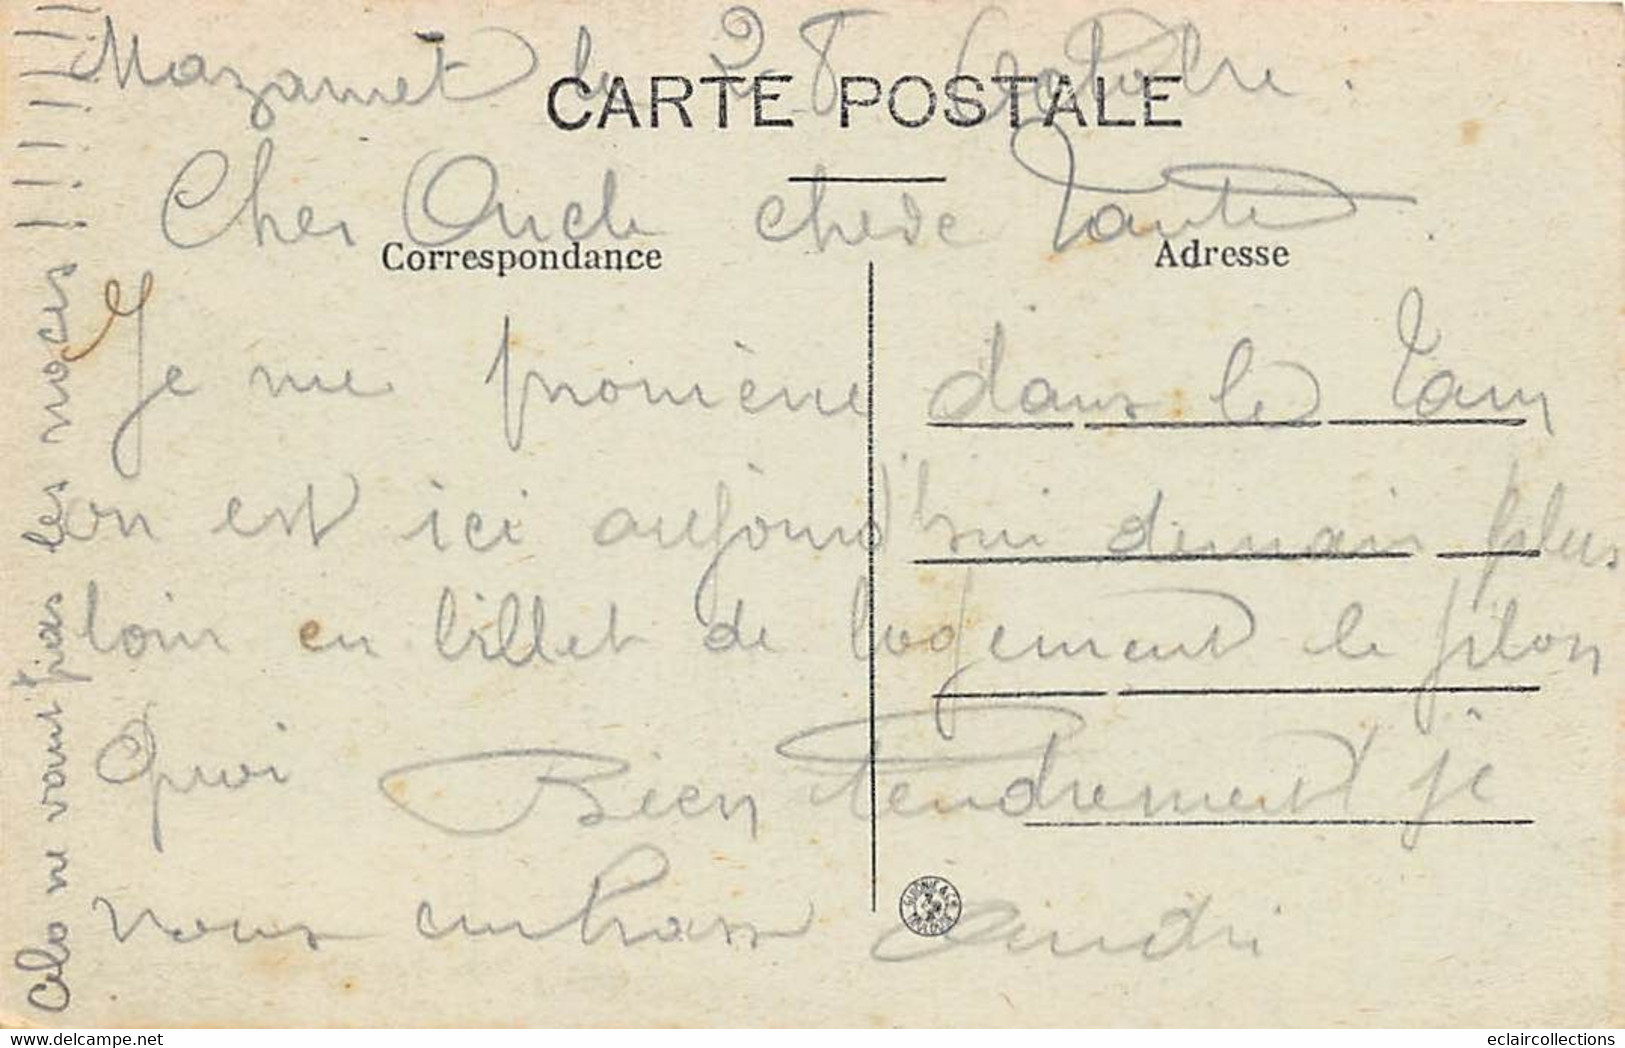 Mazamet le 28 Octobre.
CARTE POSTALE
Cher Oncle chere Tante.
Correspondance
Adresse
Je me promène dans le Tarn
on est ici aujourd'hui demain plus
loin en billet de logement le filon
quoi Bien tendrement je
vous embrass André
Cela ne vaut pas les noces !!!!!!!!
eclaircollections